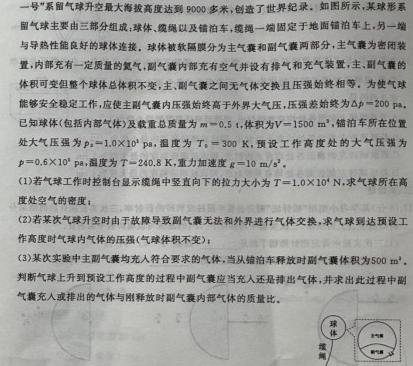 一号”系留气球升空最大海拔高度达到 9000 多米,创造了世界纪录。如图所示,某球形系
留气球主要由三部分组成,球体、缆绳以及锚泊车,缆绳一端固定于地面锚泊车上,另一端
与导热性能良好的球体连接。球体被软隔膜分为主气囊和副气囊两部分,主气囊为密闭装
置,内部充有一定质量的氦气,副气囊内部充有空气并设有排气和充气装置,主、副气囊的
体积可变但整个球体总体积不变,主、副气囊之间无气体交换且压强始终相等。为使气球
能够安全稳定工作,应使主副气囊内压强始终高于外界大气压,压强差始终为Δp=200 pa。
已知球体(包括内部气体)及载重总质量为 m=0.5 t,体积为V=1500 m³,锚泊车所在位置
处大气压强为 p₀=1.0×10⁵ pa,温度为 T₀=300 K,预设工作高度处的大气压强为
p=0.6×10⁵ pa,温度为 T=240.8 K,重力加速度 g=10 m/s²。
(1)若气球工作时控制台显示缆绳中竖直向下的拉力大小为 T=1.0×10⁴ N,求气球所在高
度处空气的密度;
(2)若某次气球升空时由于故障导致副气囊无法和外界进行气体交换,求气球到达预设工
作高度时气球内气体的压强(气球体积不变);
(3)某次实验中主副气囊均充入符合要求的气体,当从锚泊车释放时副气囊体积为500 m³。
判断气球上升到预设工作高度的过程中副气囊应当充入还是排出气体,并求出此过程中副
气囊充入或排出的气体与刚释放时副气囊内部气体的质量比。
球体
缆绳
主气囊
副气囊